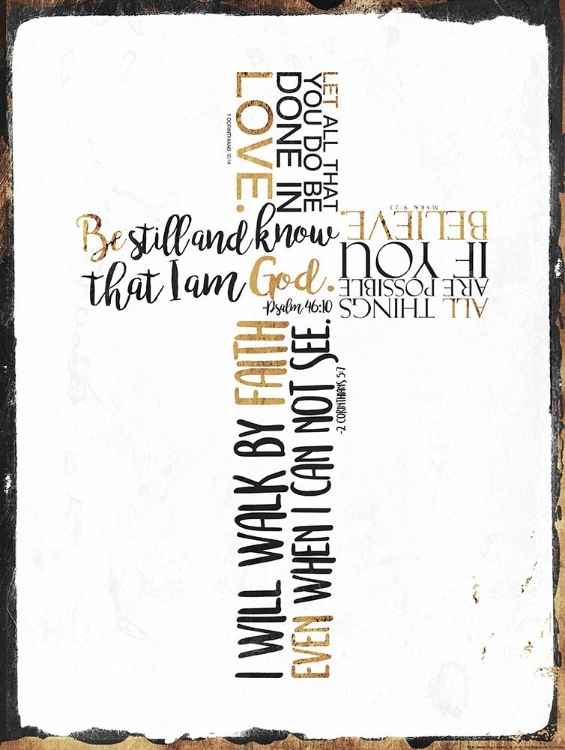 LET ALL THAT
YOU DO BE
DONE IN
LOVE.
Be still and know
that I am God.
-Psalm 46:10
ALL THINGS
ARE POSSIBLE
IF YOU
BELIEVE.
MARK 9:23
I WILL WALK BY FAITH
EVEN WHEN I CAN NOT SEE.
-2 CORINTHIANS 5:7